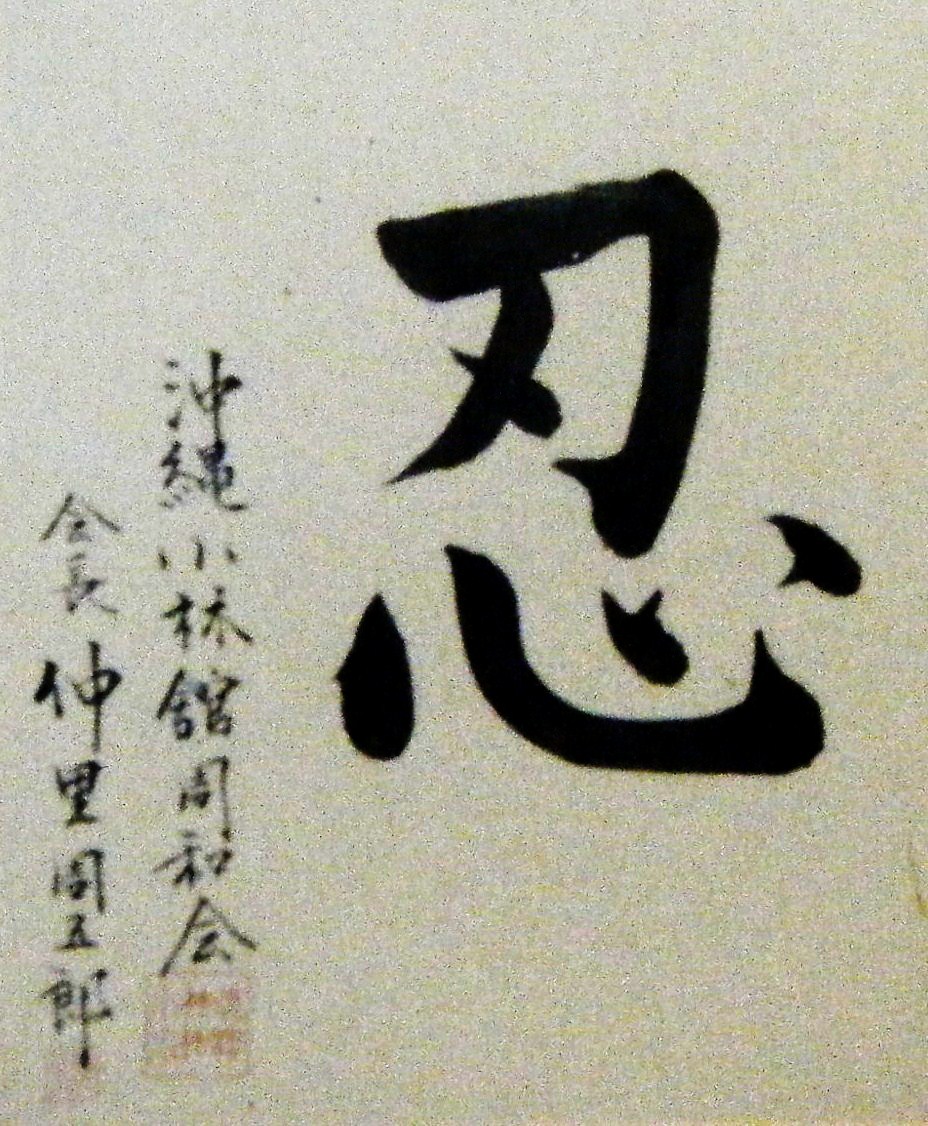 忍
沖縄小林舘周和会
会長 仲里周五郎